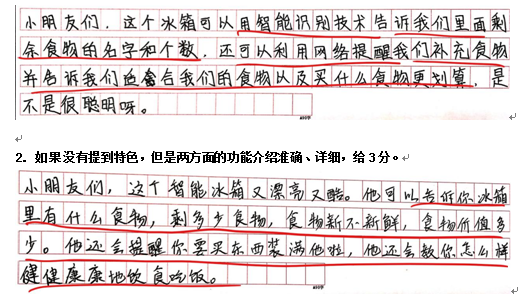 小朋友们，这个冰箱可以用智能识别技术告诉我们里面剩
余食物的名字和个数，还可以利用网络提醒我们补充食物
并告诉我们适合我们的食物以及买什么食物更划算，是
不是很聪明呀。
2．如果没有提到特色，但是两方面的功能介绍准确、详细，给 3 分。
小朋友们，这个智能冰箱又漂亮又酷。他可以告诉你冰箱
里有什么食物，剩多少食物，食物新不新鲜，食物价值多
少。他还会提醒你要买东西装满他啦，他还会教你怎么样
健健康康地饮食吃饭。